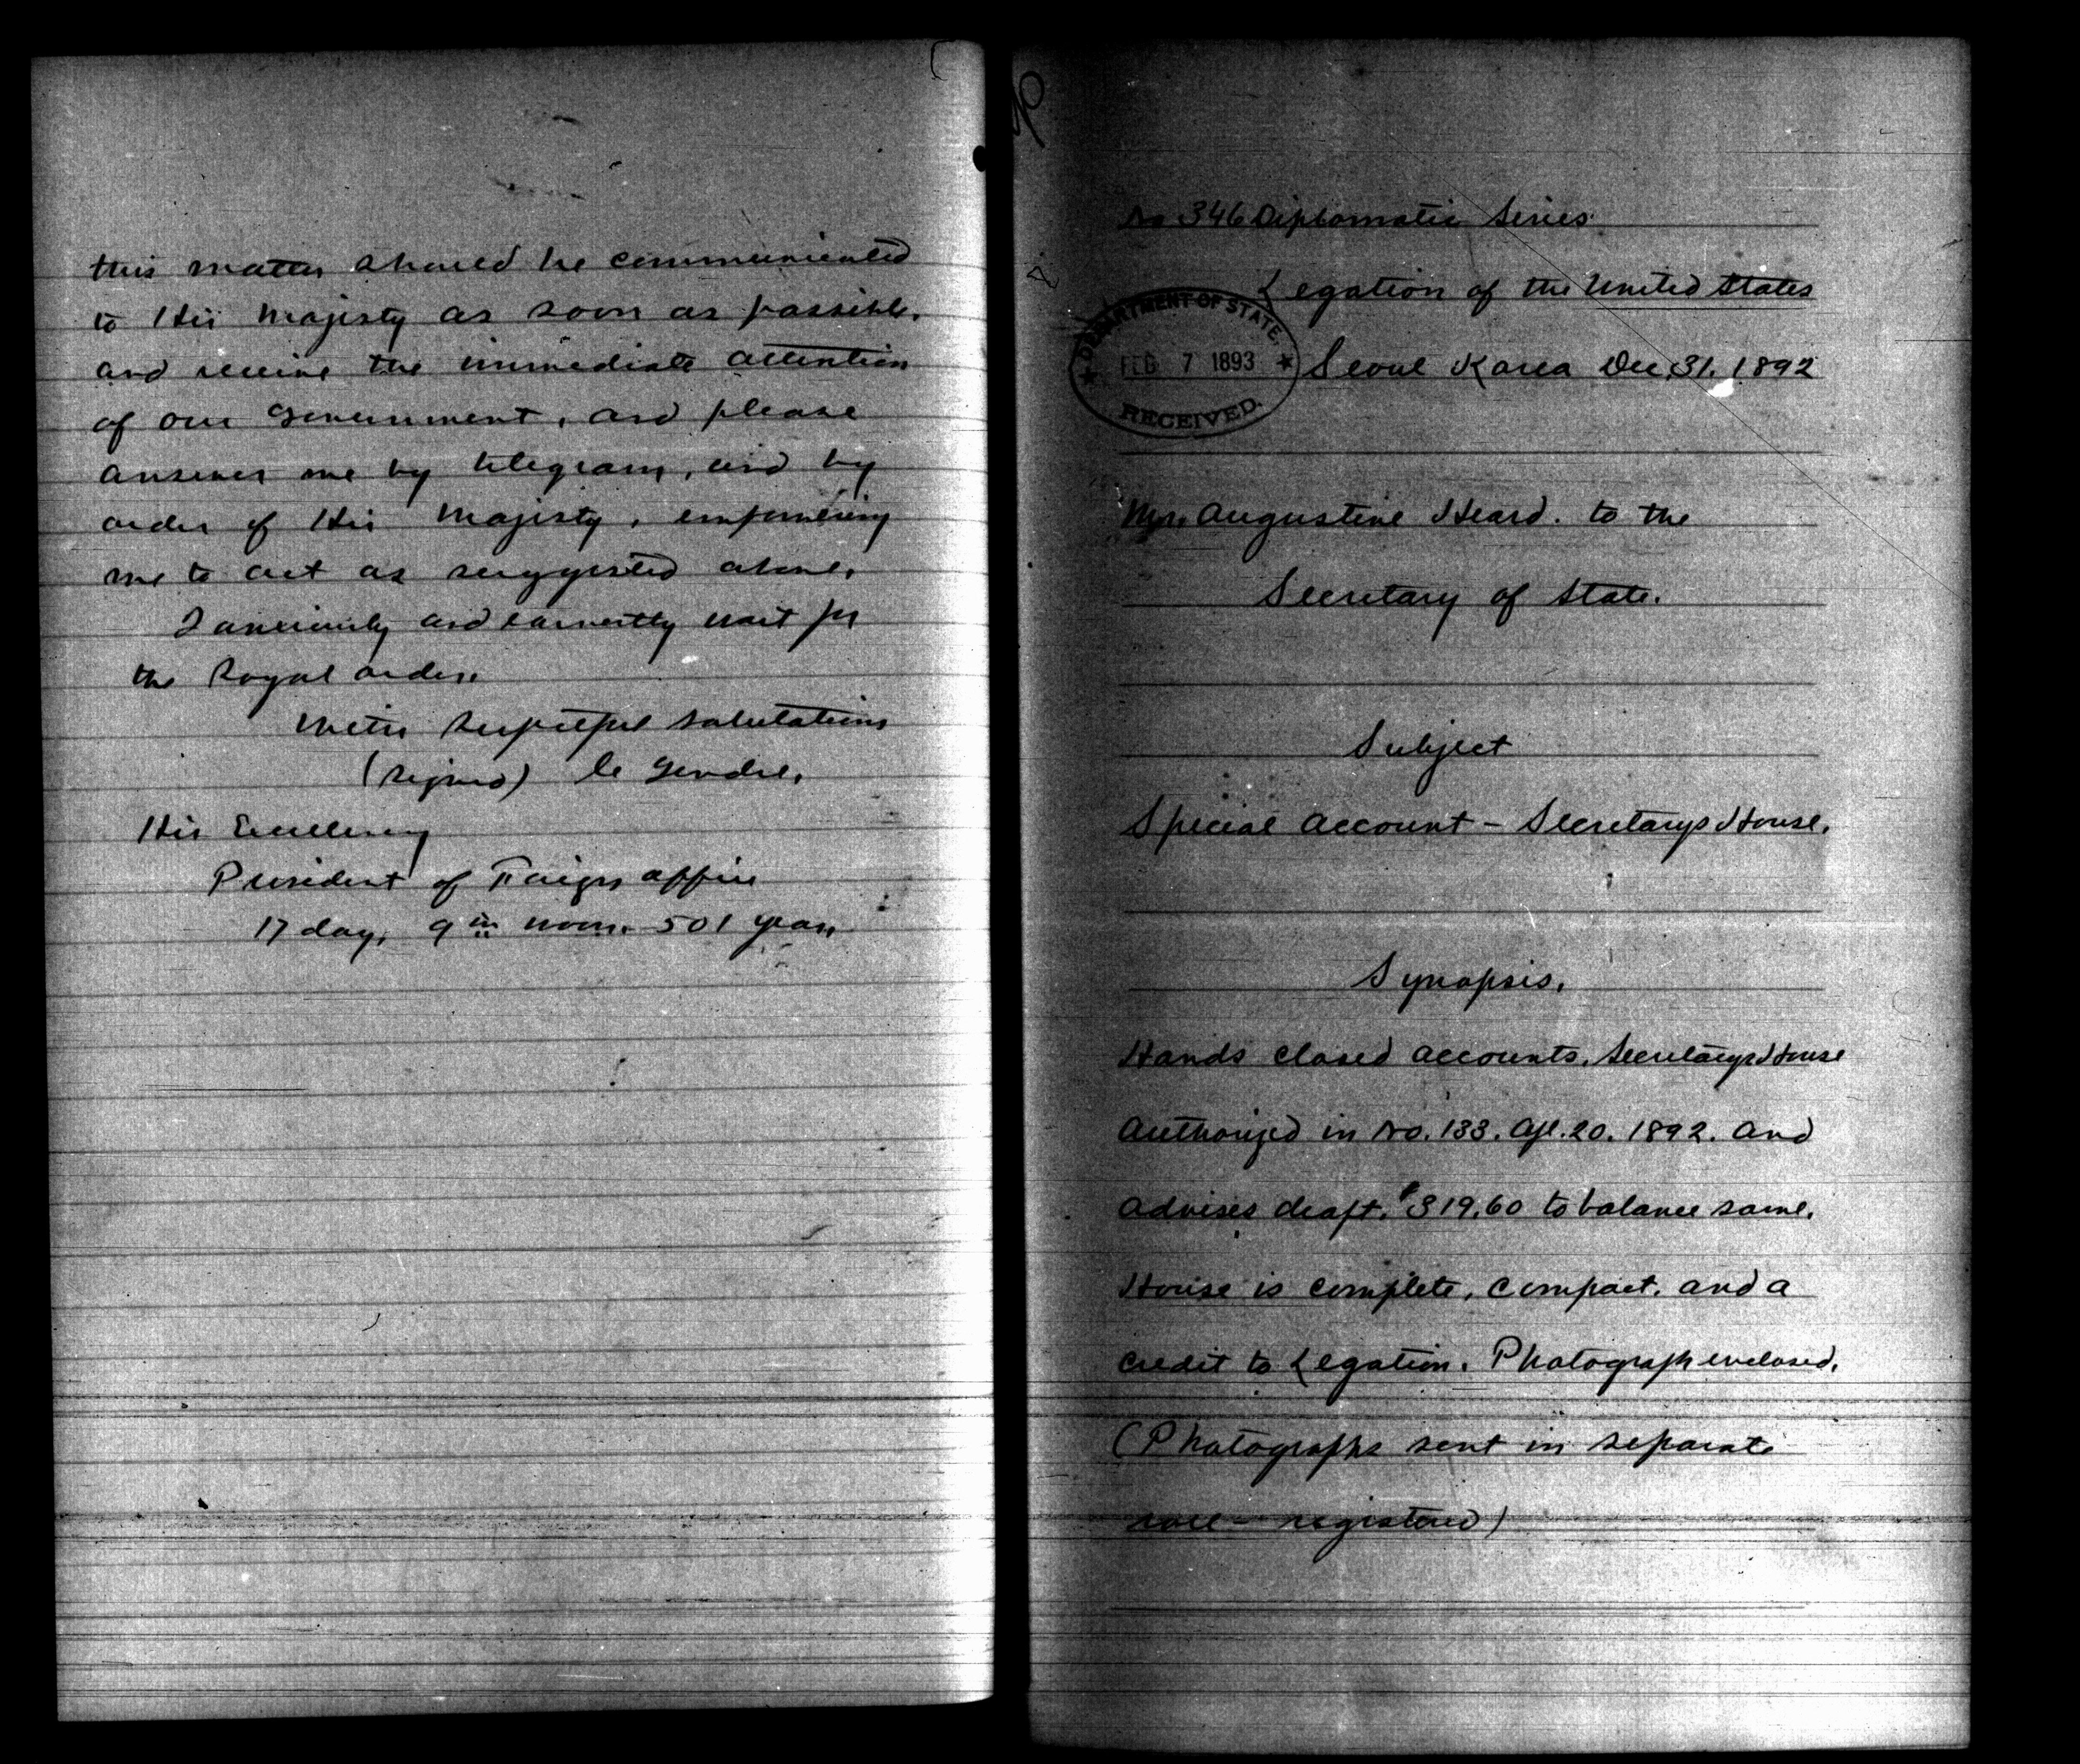 this matter should be communicated
to His Majesty as soon as possible,
and receive the immediate attention
of our Government, and please
answer me by telegram, and by
order of His Majesty, empowering
me to act as suggested above.
I anxiously and earnestly wait for
the Royal order.
With respectful salutations
(signed) Le Gendre.
His Excellency
President of Foreign office
17 day, 9th moon. 501 year.
No 346 Diplomatic Series.
Legation of the United States
DEPARTMENT OF STATE.
FEB 7 1893
RECEIVED.
Seoul Korea Dec. 31. 1892
Mr. Augustine Heard. to the
Secretary of State.
Subject
Special Account - Secretarys House.
Synopsis.
Hands closed accounts, Secretarys House
Authorized in No. 133. Apl. 20. 1892. and
advises draft. $319.60 to balance same.
House is complete, compact, and a
credit to Legation. Photograph enclosed.
(Photographs sent in separate
roll - registered)